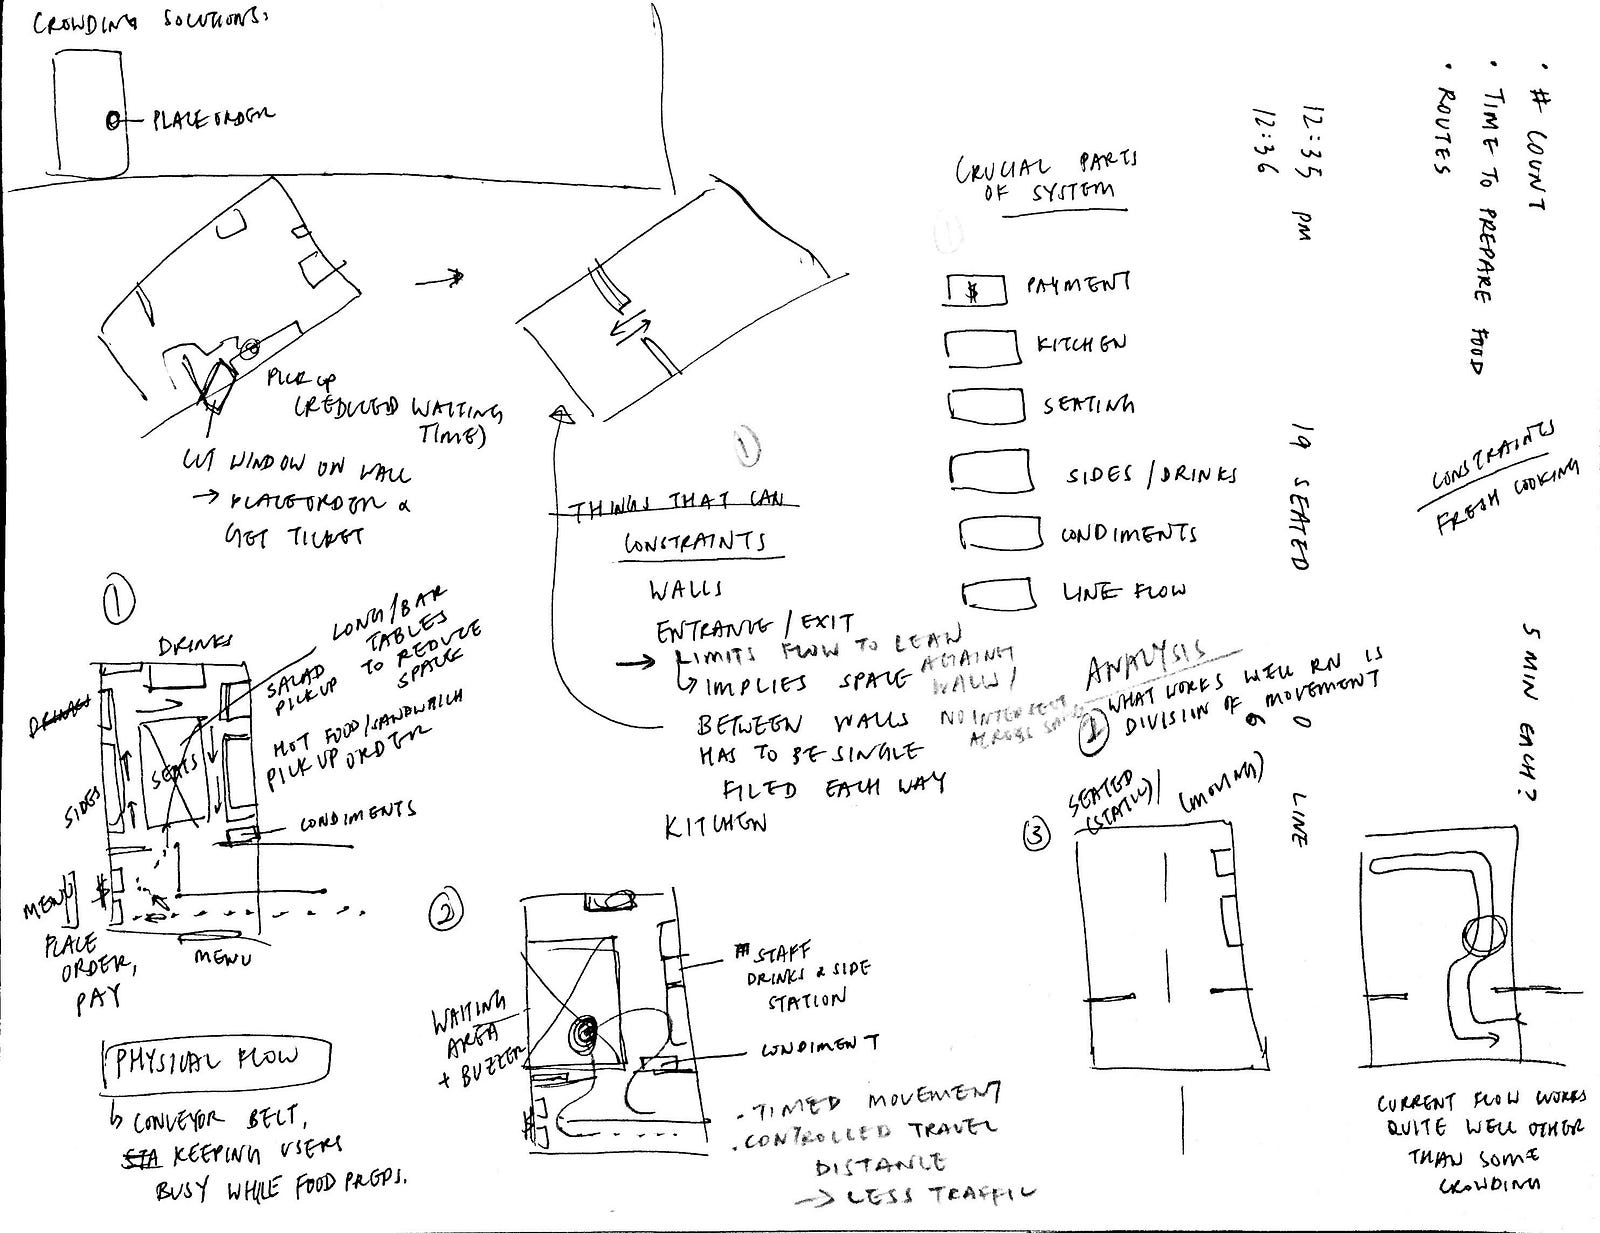 CROWDING SOLUTIONS:
PLACE ORDER
PICK UP
(REDUCED WAITING
TIME)
CUT WINDOW ON WALL
→ PLACE ORDER &
GET TICKET
THINGS THAT CAN
CONSTRAINTS
WALLS
ENTRANCE / EXIT
→ LIMITS FLOW TO LEAN
AGAINST
WALLS /
↳ IMPLIES SPACE
NO INTERSECT
ACROSS
BETWEEN WALLS
HAS TO BE SINGLE
FILED EACH WAY
KITCHEN
CRUCIAL PARTS
OF SYSTEM
$ PAYMENT
KITCHEN
SEATING
SIDES / DRINKS
CONDIMENTS
LINE FLOW
• # COUNT
• TIME TO PREPARE FOOD
• ROUTES
12:35 PM 19 SEATED 0 LINE
12:36
6
5 MIN EACH?
CONSTRAINTS
FRESH COOKING
①
①
①
DRINKS
DRINKS
LONG/BAR
TABLES
TO REDUCE
SPACE
SALAD
PICKUP
HOT FOOD/SANDWICH
PICK UP ORDER
SEATS
SIDES
CONDIMENTS
MENU
$
PLACE
ORDER,
PAY
MENU
PHYSICAL FLOW
↳ CONVEYOR BELT,
STA KEEPING USERS
BUSY WHILE FOOD PREPS.
②
WAITING
AREA
+ BUZZER
# STAFF
DRINKS & SIDE
STATION
CONDIMENT
$
• TIMED MOVEMENT
• CONTROLLED TRAVEL
DISTANCE
→ LESS TRAFFIC
ANALYSIS
① WHAT WORKS WELL RN IS
DIVISION OF MOVEMENT
③
SEATED
(STATIC) / (MOVING)
CURRENT FLOW WORKS
QUITE WELL OTHER
THAN SOME
CROWDING